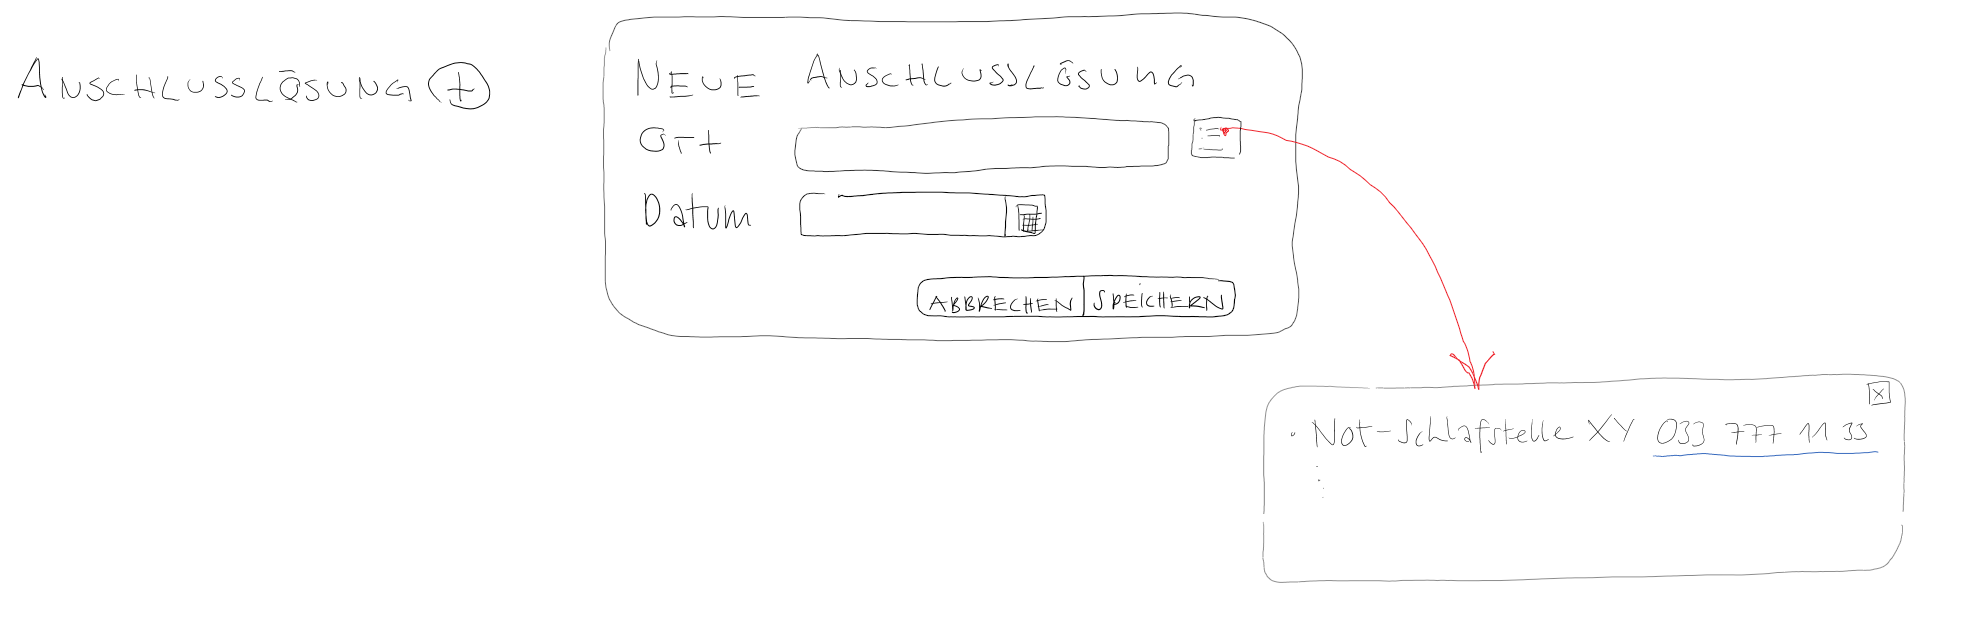 ANSCHLUSSLÖSUNG +
NEUE ANSCHLUSSLÖSUNG
Ort
Datum
ABBRECHEN SPEICHERN
x
• Not-Schlafstelle XY 033 777 11 33